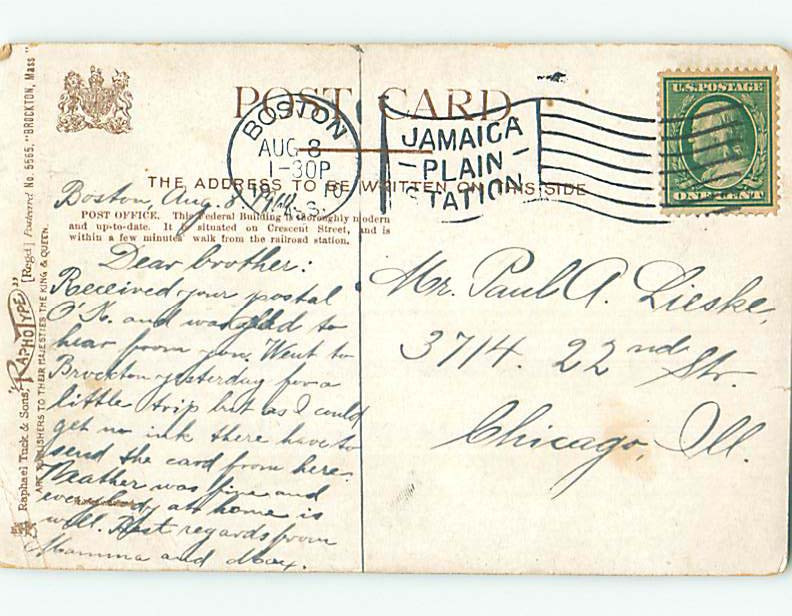 POST CARD
BOSTON
AUG 8
1-30P
JAMAICA
-PLAIN-
STATION
U.S.POSTAGE
ONE CENT
THE ADDRESS TO BE WRITTEN ON THIS SIDE
Boston, Aug. 8, 1910.
POST OFFICE. This Federal Building is thoroughly modern
and up-to-date. It is situated on Crescent Street, and is
within a few minutes' walk from the railroad station.
Dear brother:
Received your postal
O'K. and was glad to
hear from you. Went to
Brockton yesterday for a
little trip but as I could
get no ink there have to
send the card from here.
Weather was fine and
everybody at home is
well. Best regards from
Mamma and Max.
Mr. Paul A. Lieske,
3714. 22nd Str.
Chicago, Ill.
Raphael Tuck & Sons' "RAPHOTYPE" [Regd] Postcard No. 5565. "BROCKTON, Mass"
ART PUBLISHERS TO THEIR MAJESTIES THE KING & QUEEN.